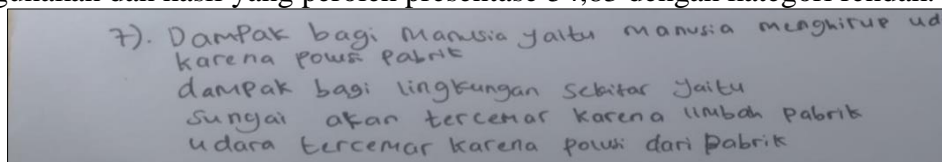 7). Dampak bagi Manusia yaitu manusia menghirup ud
karena polusi pabrik
dampak bagi lingkungan sekitar yaitu
sungai akan tercemar karena limbah pabrik
udara tercemar karena polusi dari pabrik